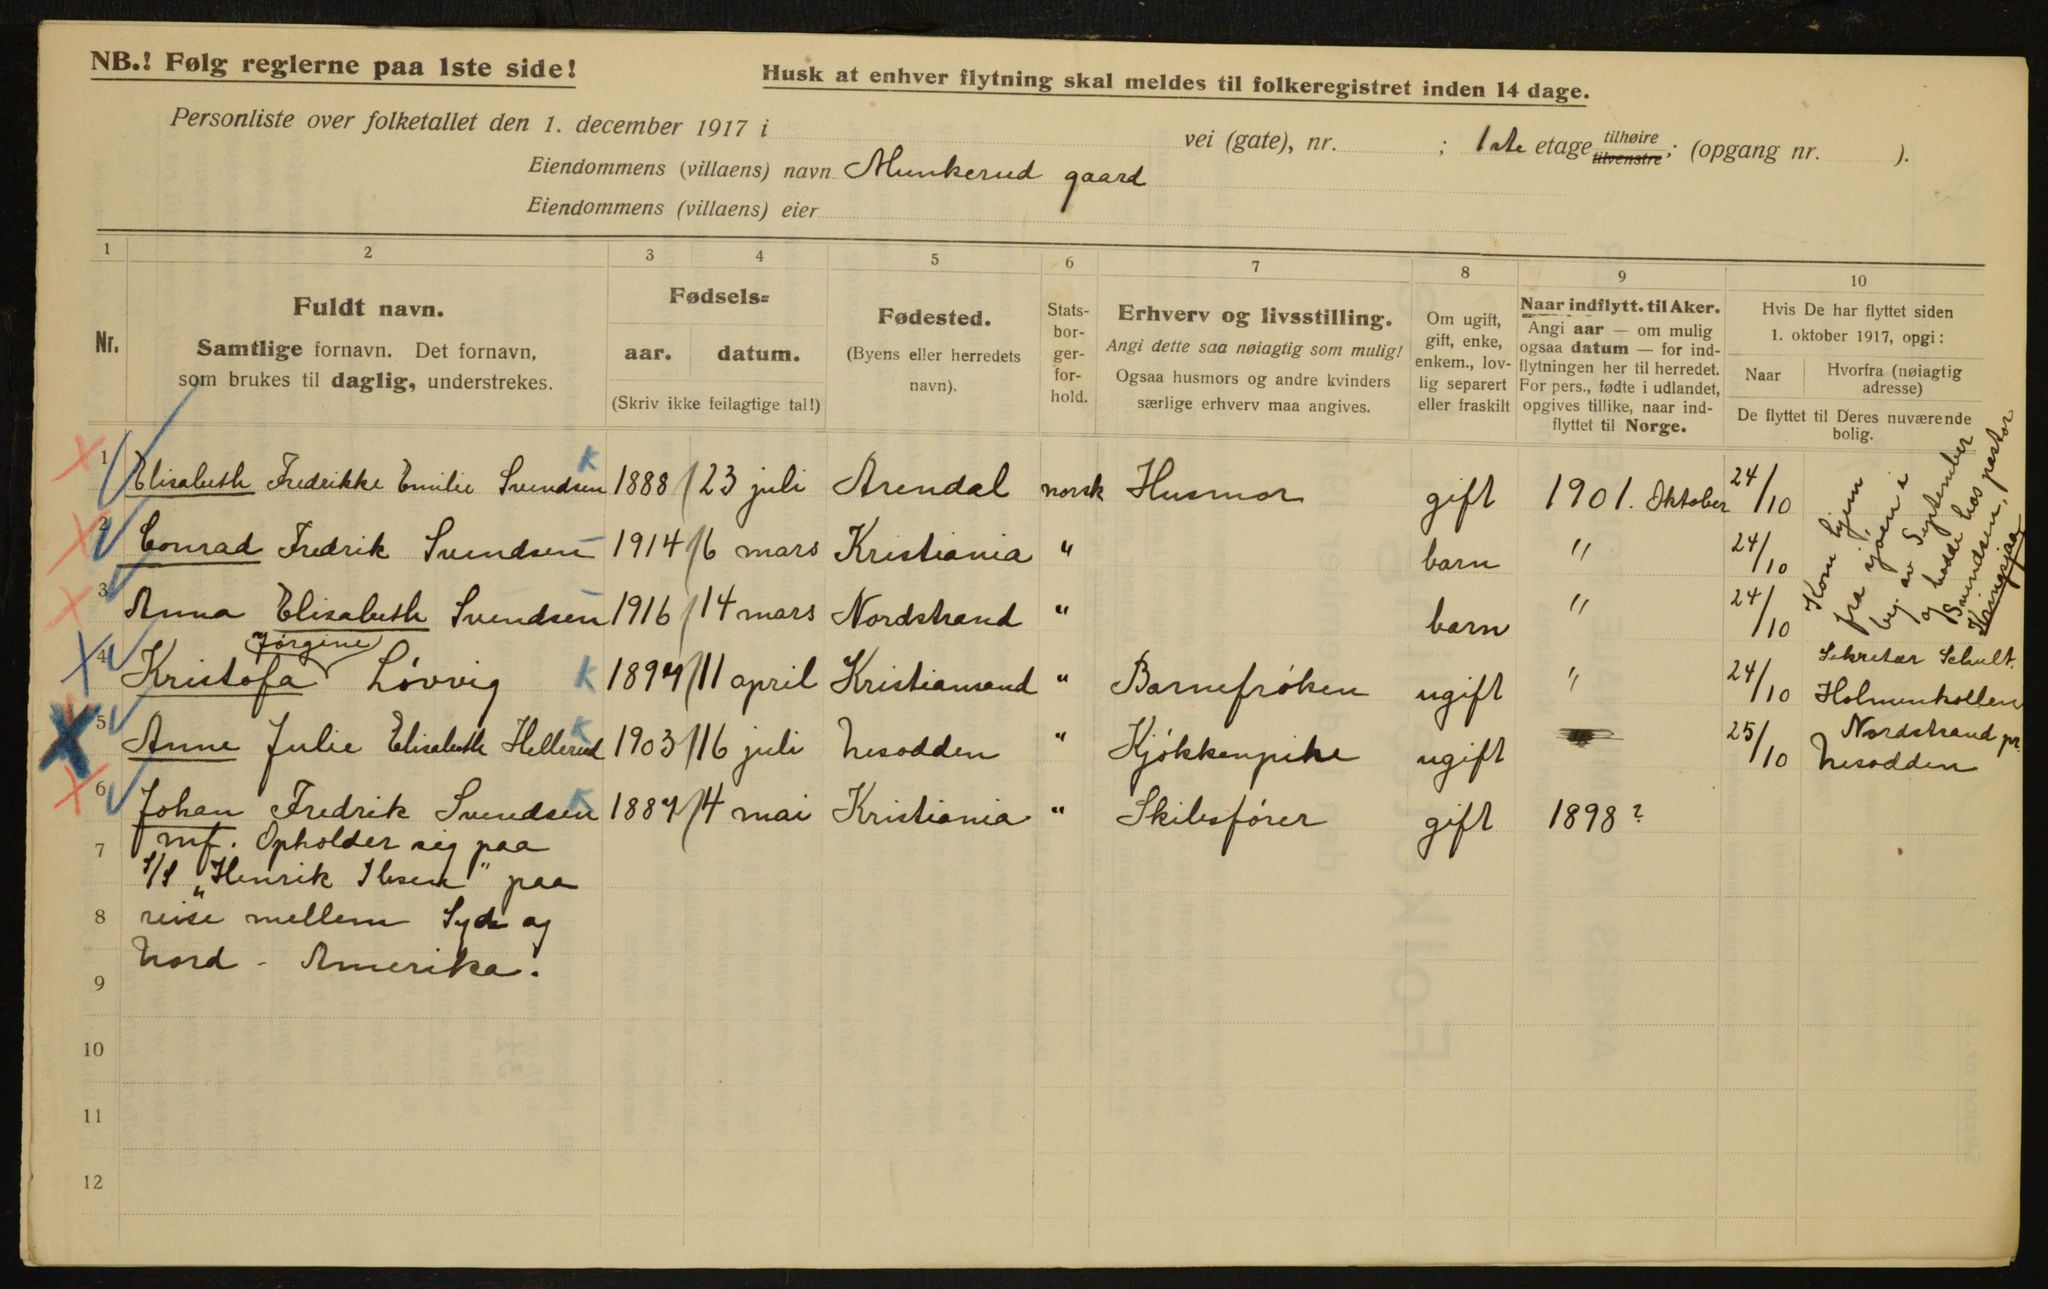 NB.! Følg reglerne paa 1ste side!
Husk at enhver flytning skal meldes til folkeregistret inden 14 dage.
Personliste over folketallet den 1. december 1917 i vei (gate), nr. ; 1ste etage tilhøire tilvenstre; (opgang nr. ).
Eiendommens (villaens) navn Munkerud gaard
Eiendommens (villaens) eier
1 2 3 4 5 6 7 8 9 10
Nr.
Fuldt navn.
Samtlige fornavn. Det fornavn,
som brukes til daglig, understrekes.
Fødsels=
aar. datum.
(Skriv ikke feilagtige tal!)
Fødested.
(Byens eller herredets
navn).
Stats-
bor-
ger-
for-
hold.
Erhverv og livsstilling.
Angi dette saa nøiagtig som mulig!
Ogsaa husmors og andre kvinders
særlige erhverv maa angives.
Om ugift,
gift, enke,
enkem., lov-
lig separert
eller fraskilt
Naar indflytt. til Aker.
Angi aar — om mulig
ogsaa datum — for ind-
flytningen her til herredet.
For pers., fødte i udlandet,
opgives tillike, naar ind-
flyttet til Norge.
Hvis De har flyttet siden
1. oktober 1917, opgi:
Naar
Hvorfra (nøiagtig
adresse)
De flyttet til Deres nuværende
bolig.
1 Elisabeth Fredrikke Emilie Svendsen K 1888 23 juli Arendal norsk Husmor gift 1901. Oktober 24/10
Kom hjem
fra sjøen i
beg. av September
og bodde hos pastor
Svindsen,
2 Conrad Fredrik Svendsen 1914 6 mars Kristiania " barn " 24/10
3 Anna Elisabeth Svendsen 1916 14 mars Nordstrand " barn " 24/10
Jørgine
4 Kristofa Løvvig K 1897 11 april Kristiansand " Barnefrøken ugift " 24/10 Sekretær Schult.
Holmenkollen
5 Anne Julie Elisabeth Hellerud K 1903 16 juli Nesodden " Kjøkkenpike ugift 25/10 Nordstrand pr.
Nesodden
6 Johan Fredrik Svendsen K 1887 4 mai Kristiania " Skibsfører gift 1898?
7 mf. Opholder sig paa
S/S „Henrik Ibsen" paa
8 reise mellem Syd og
Nord - Amerika.
9
10
11
12